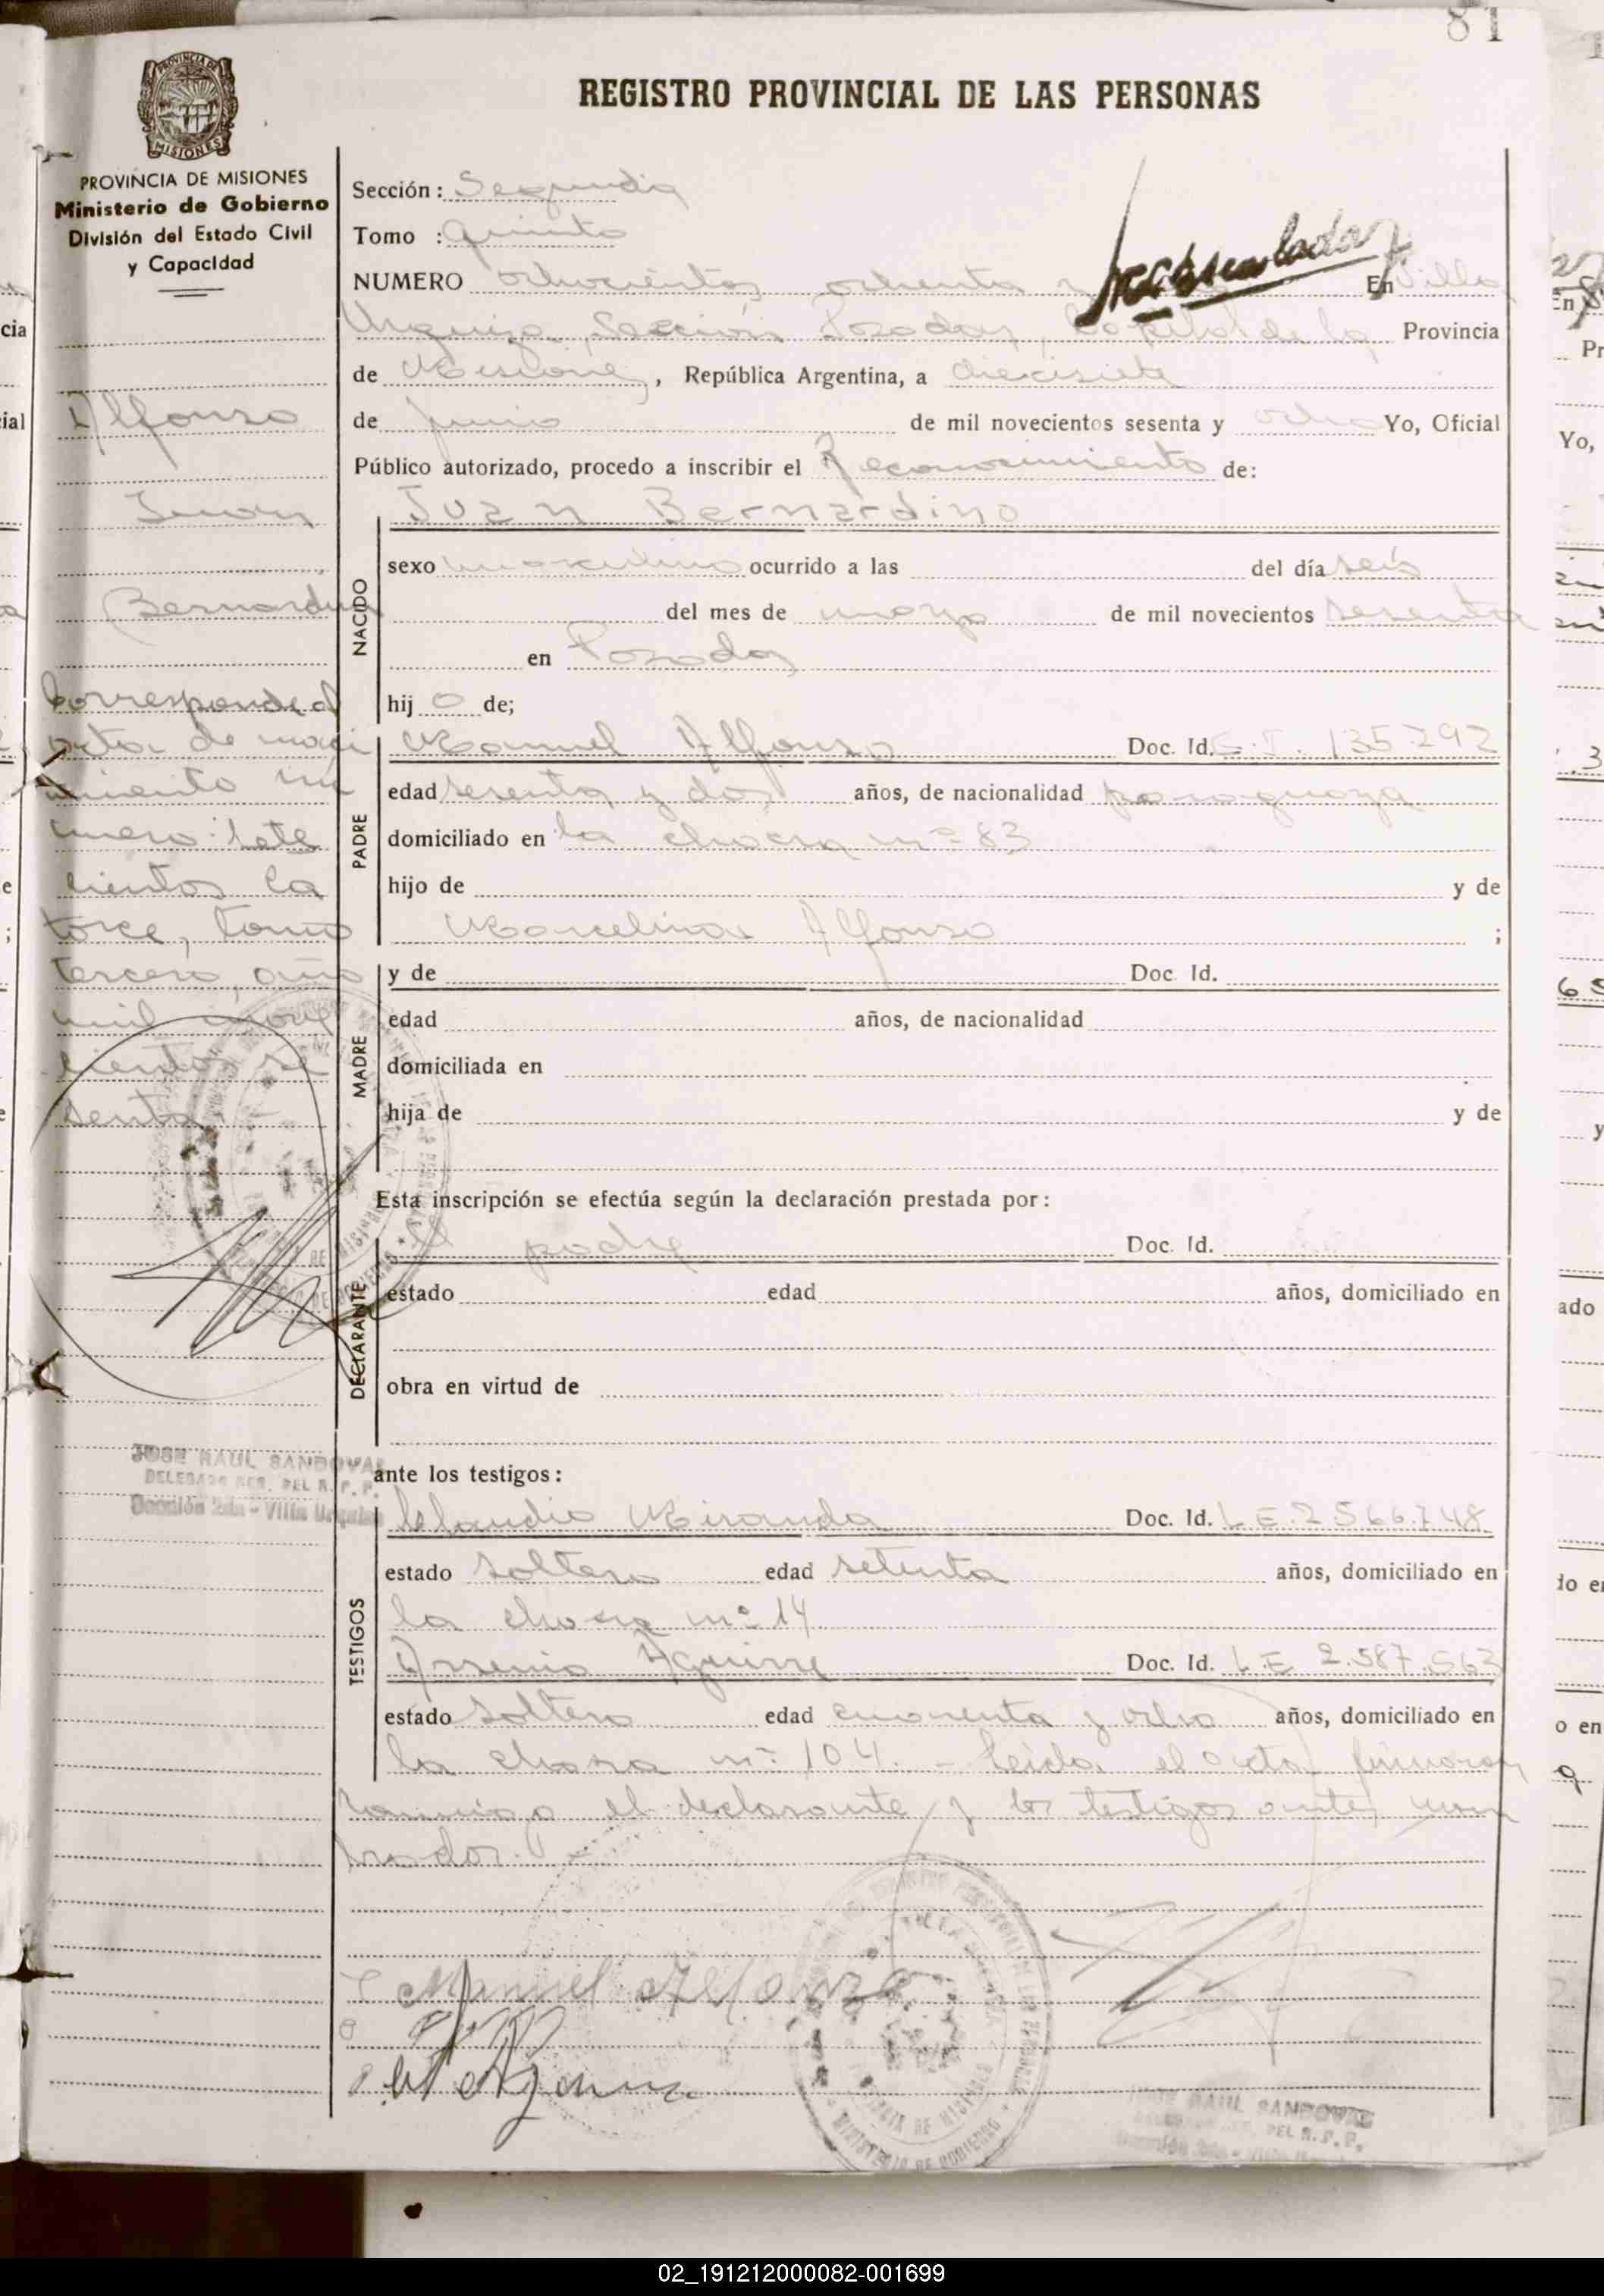 81
REGISTRO PROVINCIAL DE LAS PERSONAS
PROVINCIA DE MISIONES
MISIONES
PROVINCIA DE MISIONES
Ministerio de Gobierno
División del Estado Civil
y Capacidad
Alfonso
Juan
Bernardino
Corresponde al
acta de naci
miento nú
mero: sete
cientos ca
torce, tomo
tercero, año
mil nove
cientos se
senta
JOSE RAUL SANDOVAL
DELEGADO RER. DEL R. P. P.
Sección 2da - Villa Urquiza
Sección: Segunda
Tomo : Quinto
NUMERO ochocientos ochenta y En Villa
Urquiza, Sección Posadas, Capital de la Provincia
de Misiones, República Argentina, a diecisiete
de junio de mil novecientos sesenta y ocho Yo, Oficial
Público autorizado, procedo a inscribir el Reconocimiento de:
NACIDO
Juan Bernardino
sexo masculino ocurrido a las del día seis
del mes de mayo de mil novecientos sesenta
en Posadas
hij o de;
PADRE
Manuel Alfonso Doc. Id. C.I. 135292
edad sesenta y dos años, de nacionalidad paraguaya
domiciliado en la chacra nº 83
hijo de y de
Marcelina Alfonso ;
MADRE
y de Doc. Id.
edad años, de nacionalidad
domiciliada en
hija de y de
Esta inscripción se efectúa según la declaración prestada por:
DECLARANTE
el padre Doc. Id.
estado edad años, domiciliado en
obra en virtud de
ante los testigos:
TESTIGOS
Claudio Miranda Doc. Id. L.E. 2566.748
estado soltero edad setenta años, domiciliado en
la chacra nº 14
Arsenio Aguirre Doc. Id. L.E. 2.587.563
estado soltero edad cuarenta y ocho años, domiciliado en
la chacra nº 104. - Leida el acta firmaron
conmigo el declarante y los testigos antes nom
brados. -
Manuel Alfonzo
JOSE RAUL SANDOVAL
DEL R. P. P.
02_191212000082-001699